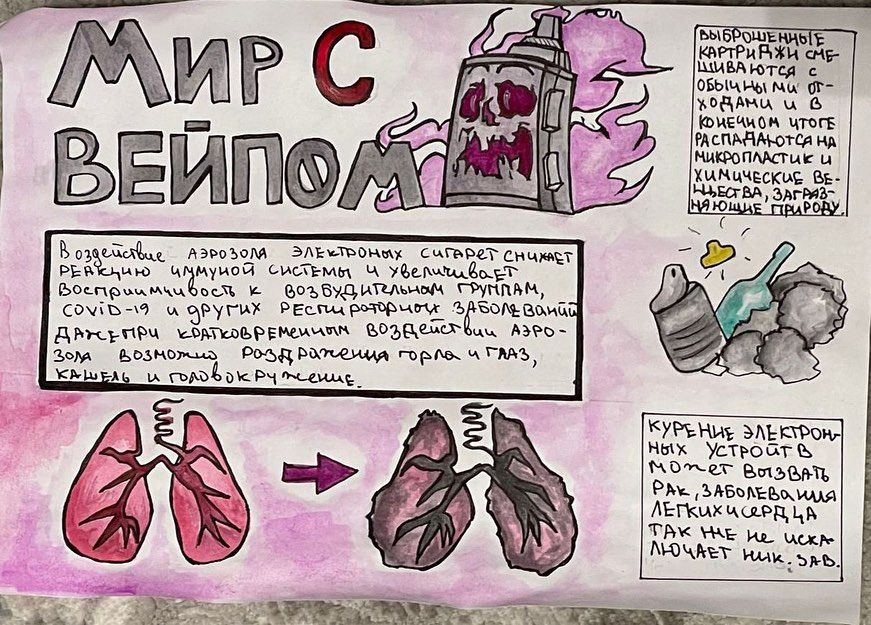 Мир С
ВЕЙПОМ
ВЫБРОШЕННЫЕ
КАРТРИДЖИ СМЕ-
ШИВАЮТСЯ С
ОБЫЧНЫМИ ОТ-
ХОДАМИ И В
КОНЕЧНОМ ИТОГЕ
РАСПАДАЮТСЯ НА
МИКРОПЛАСТИК И
ХИМИЧЕСКИЕ ВЕ-
ЩЕСТВА, ЗАГРЯЗ-
НЯЮЩИЕ ПРИРОДУ.
Воздействие АЭРОЗОЛЯ ЭЛЕКТРОНЫХ СИГАРЕТ СНИЖАЕТ
РЕАКЦИЮ ИММУНОЙ СИСТЕМЫ И УВЕЛИЧИВАЕТ
ВОСПРИИМЧИВОСТЬ К ВОЗБУДИТЕЛЬНЫМ ГРУППАМ,
COVID-19 И ДРУГИХ РЕСПИРАТОРНЫХ ЗАБОЛЕВАНИЙ
ДАЖЕ ПРИ КРАТКОВРЕМЕННЫМ ВОЗДЕЙСТВИИ АЭРО-
ЗОЛЯ ВОЗМОЖНО РАЗДРАЖЕНИЯ ГОРЛА И ГЛАЗ,
КАШЕЛЬ И ГОЛОВОКРУЖЕНИЕ.
КУРЕНИЕ ЭЛЕКТРОН-
НЫХ УСТРОЙТВ
МОЖЕТ ВЫЗВАТЬ
РАК, ЗАБОЛЕВАНИЯ
ЛЕГКИХ И СЕРДЦА
ТАК ЖЕ НЕ ИСКА-
ЛЮЧАЕТ НИК. ЗАВ.